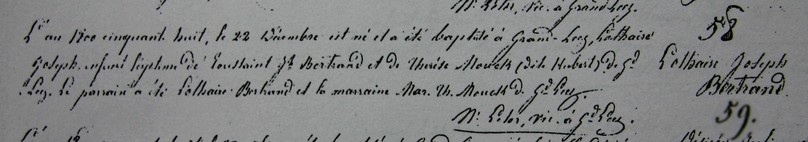 vic. à Grand-Leez.
L'an 1700 cinquant huit, le 22 Décembre est né et a été baptisé à Grand-Leez, Lothaire 58
Joseph, enfant légitime de Toussaint Jh Bertrand et de Thérèse Mouck (dite Hubert) de Gd Lothaire Joseph
Leez. Le parrain a été Lothaire Bertrand et la marraine Mar. Th. Mouck de Gd Leez. Bertrand.
vic. à Gd Leez. 59.